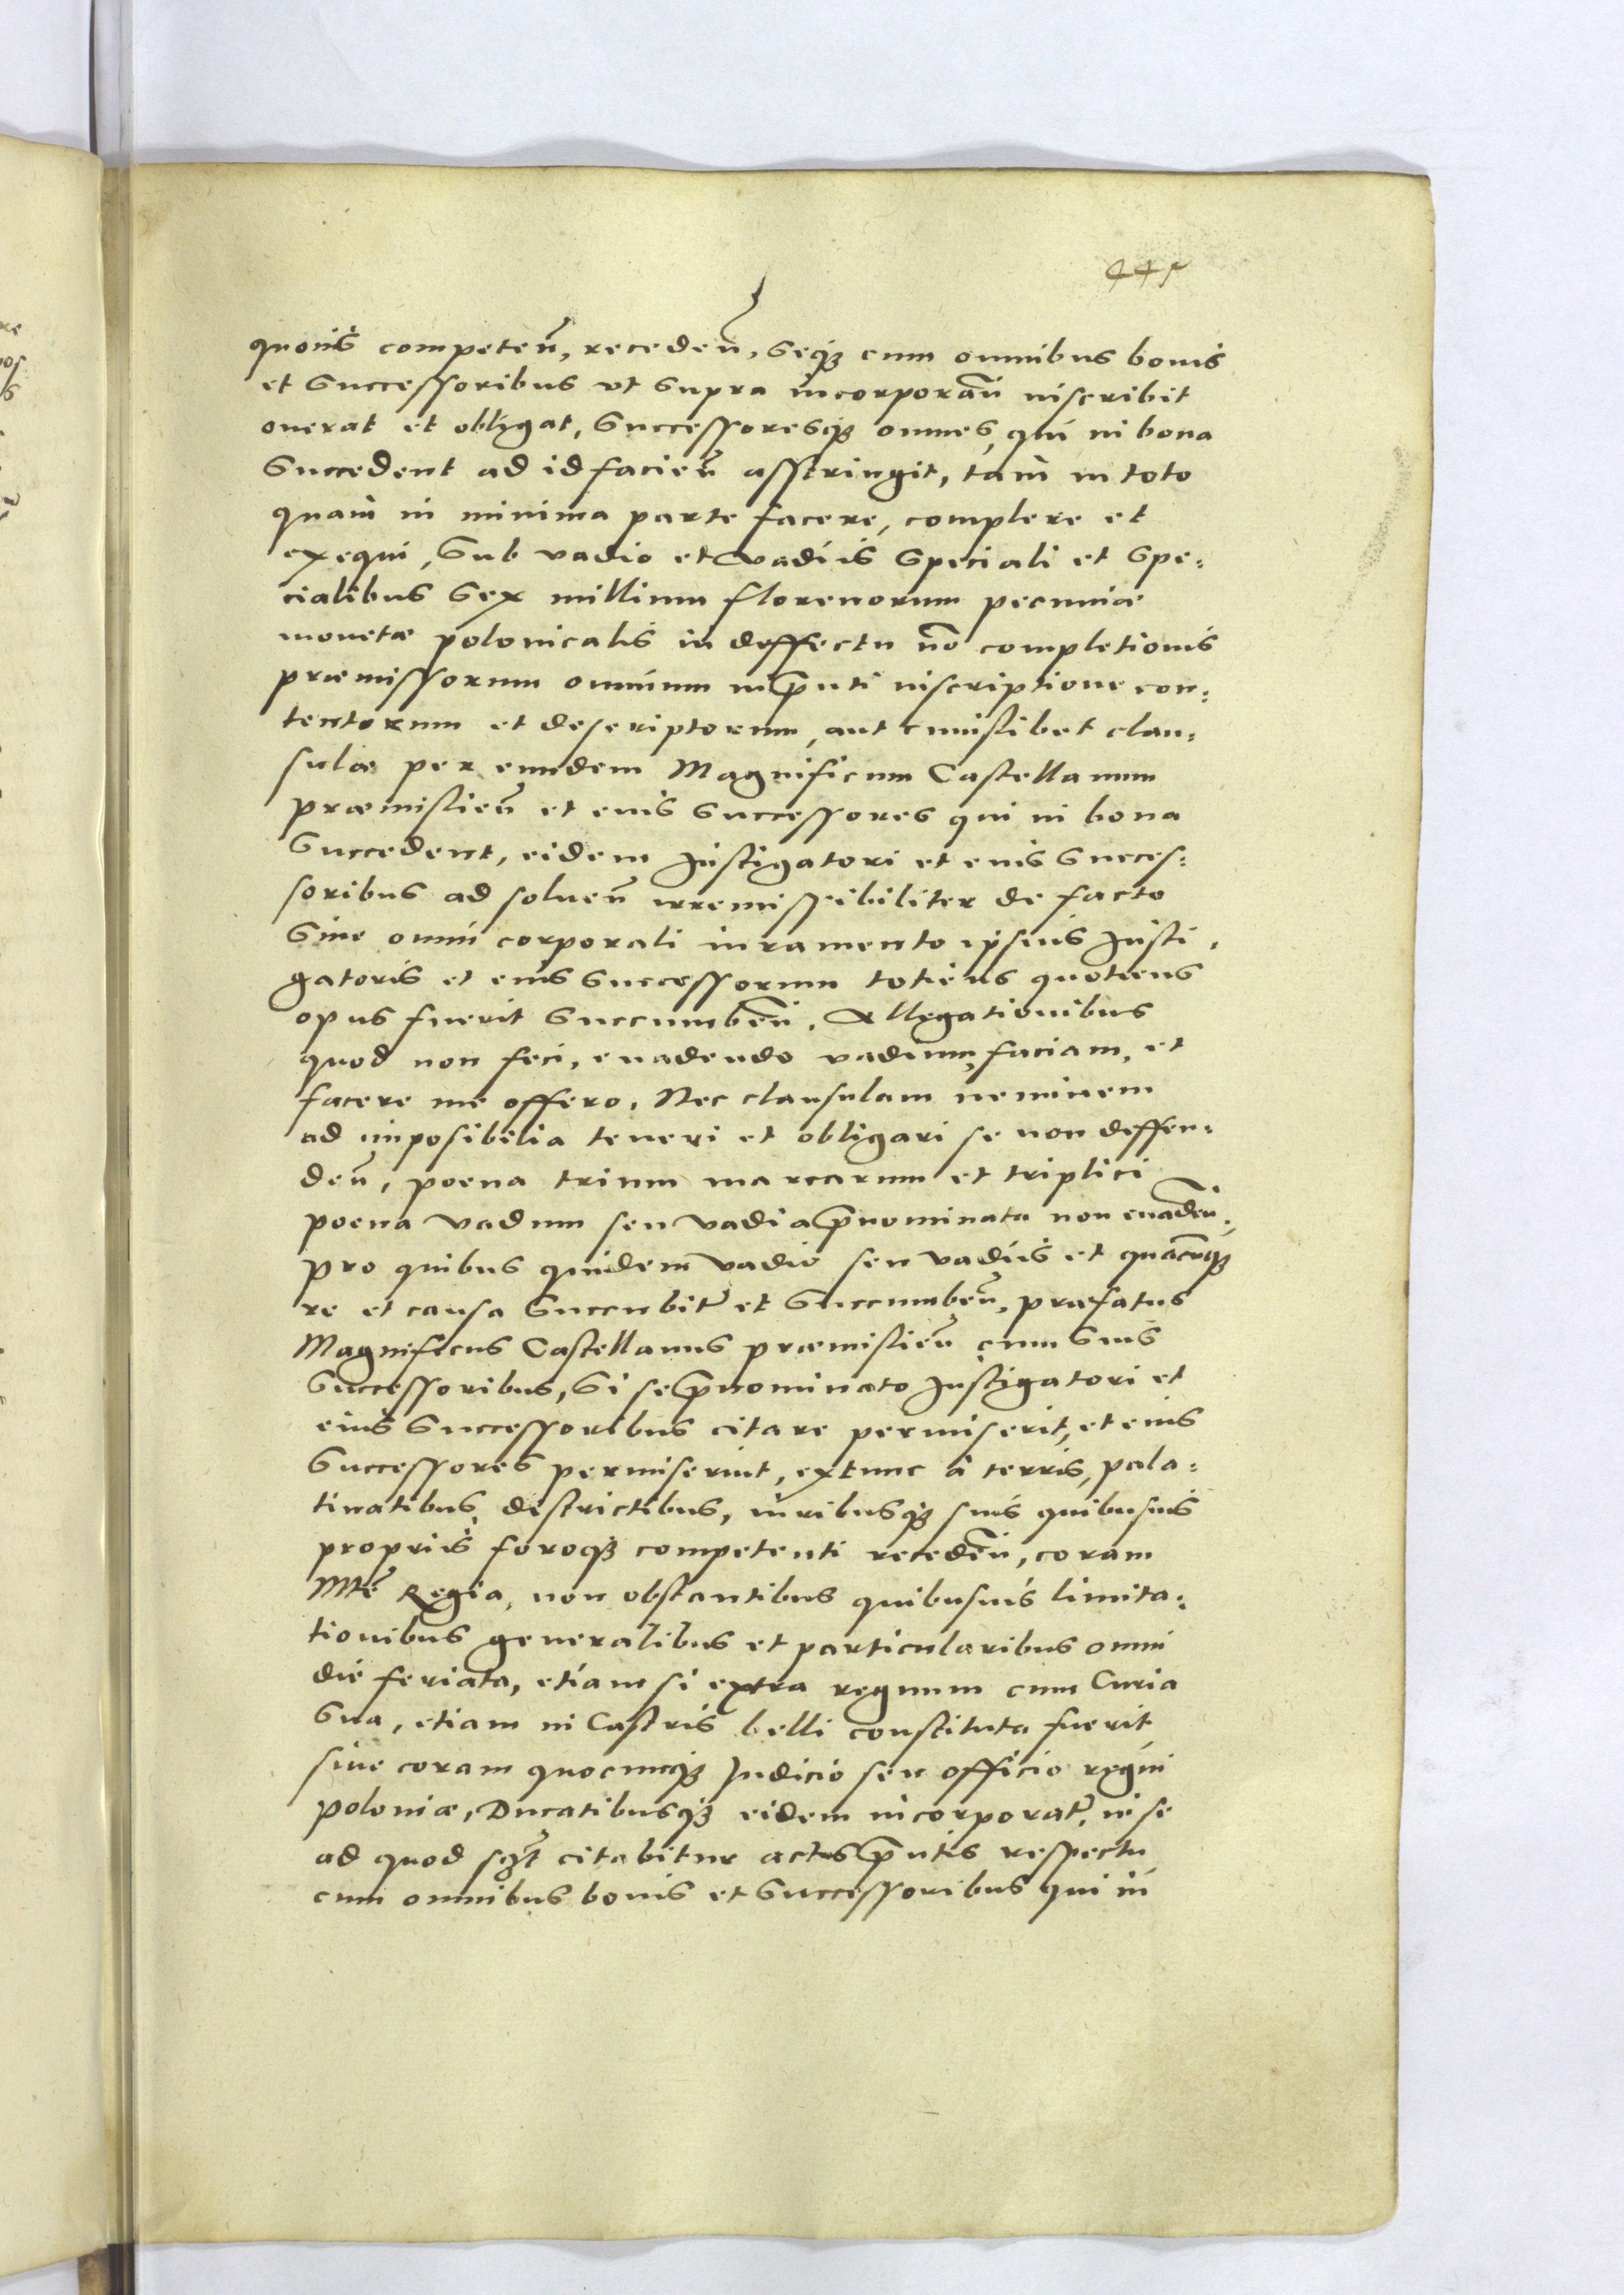 445
quouis competeñ, recedeñ, seq[ue] cum omnibus bonis
et successoribus vt supra incorporañ inscribit
onerat et obligat, successoresq[ue] omnes, qui in bona
succedent ad id facieñ asstringit, tam in toto
quam in minima parte facere, complere et
exequi, sub vadio et vadiis speciali et spe:
cialibus sex millium florenorum pecuniæ
monetæ polonicalis in deffectu nō completionis
præmissorum omnium in pñti inscriptione con:
tentorum et descriptorum, aut cuiuslibet clau:
sulæ per eundem Magnificum Castellanum
præmislieñ et eius successores qui in bona
succedent, eidem Instigatori et eius succes:
soribus ad solueñ irremissibiliter de facto
sine omni corporali iuramento ipsius Insti,
gatoris et eius successorum totiens quotiens
opus fuerit succumbeñ. Allegationibus
quod non feci, euadendo vadium, faciam, et
facere me offero. Nec clausulam neminem
ad imposibilia teneri et obligari se non deffen:
deñ, poena trium marcarum et triplici
poena vadium seu vadia pñominata non euadeñ.
pro quibus quidem vadio seu vadiis et quacūq[ue]
re et causa succubit' et succumbeñ, præfatus
Magnificus Castellanus præmislieñ cum suis
successoribus, si se pñominato Instigatori et
eius successoribus citare permiserit, et eius
successores permiserint, extunc à terris, pala:
tinatibus, destrictibus, iuribusq[ue] suis quibusuis
propriis foroq[ue] competenti recedeñ, coram
Mte Regia, non obstantibus quibusuis limita:
tionibus generalibus et particularibus omni
die feriata, etiam si extra regnum cum Curia
sua, etiam in Castris belli constituta fuerit,
siue coram quocunq[ue] Iudicio seu officio regni
poloniæ, Ducatibusq[ue] eidem incorporat', in se
ad quod citabitur actus pñtis respectu
cum omnibus bonis et successoribus qui in